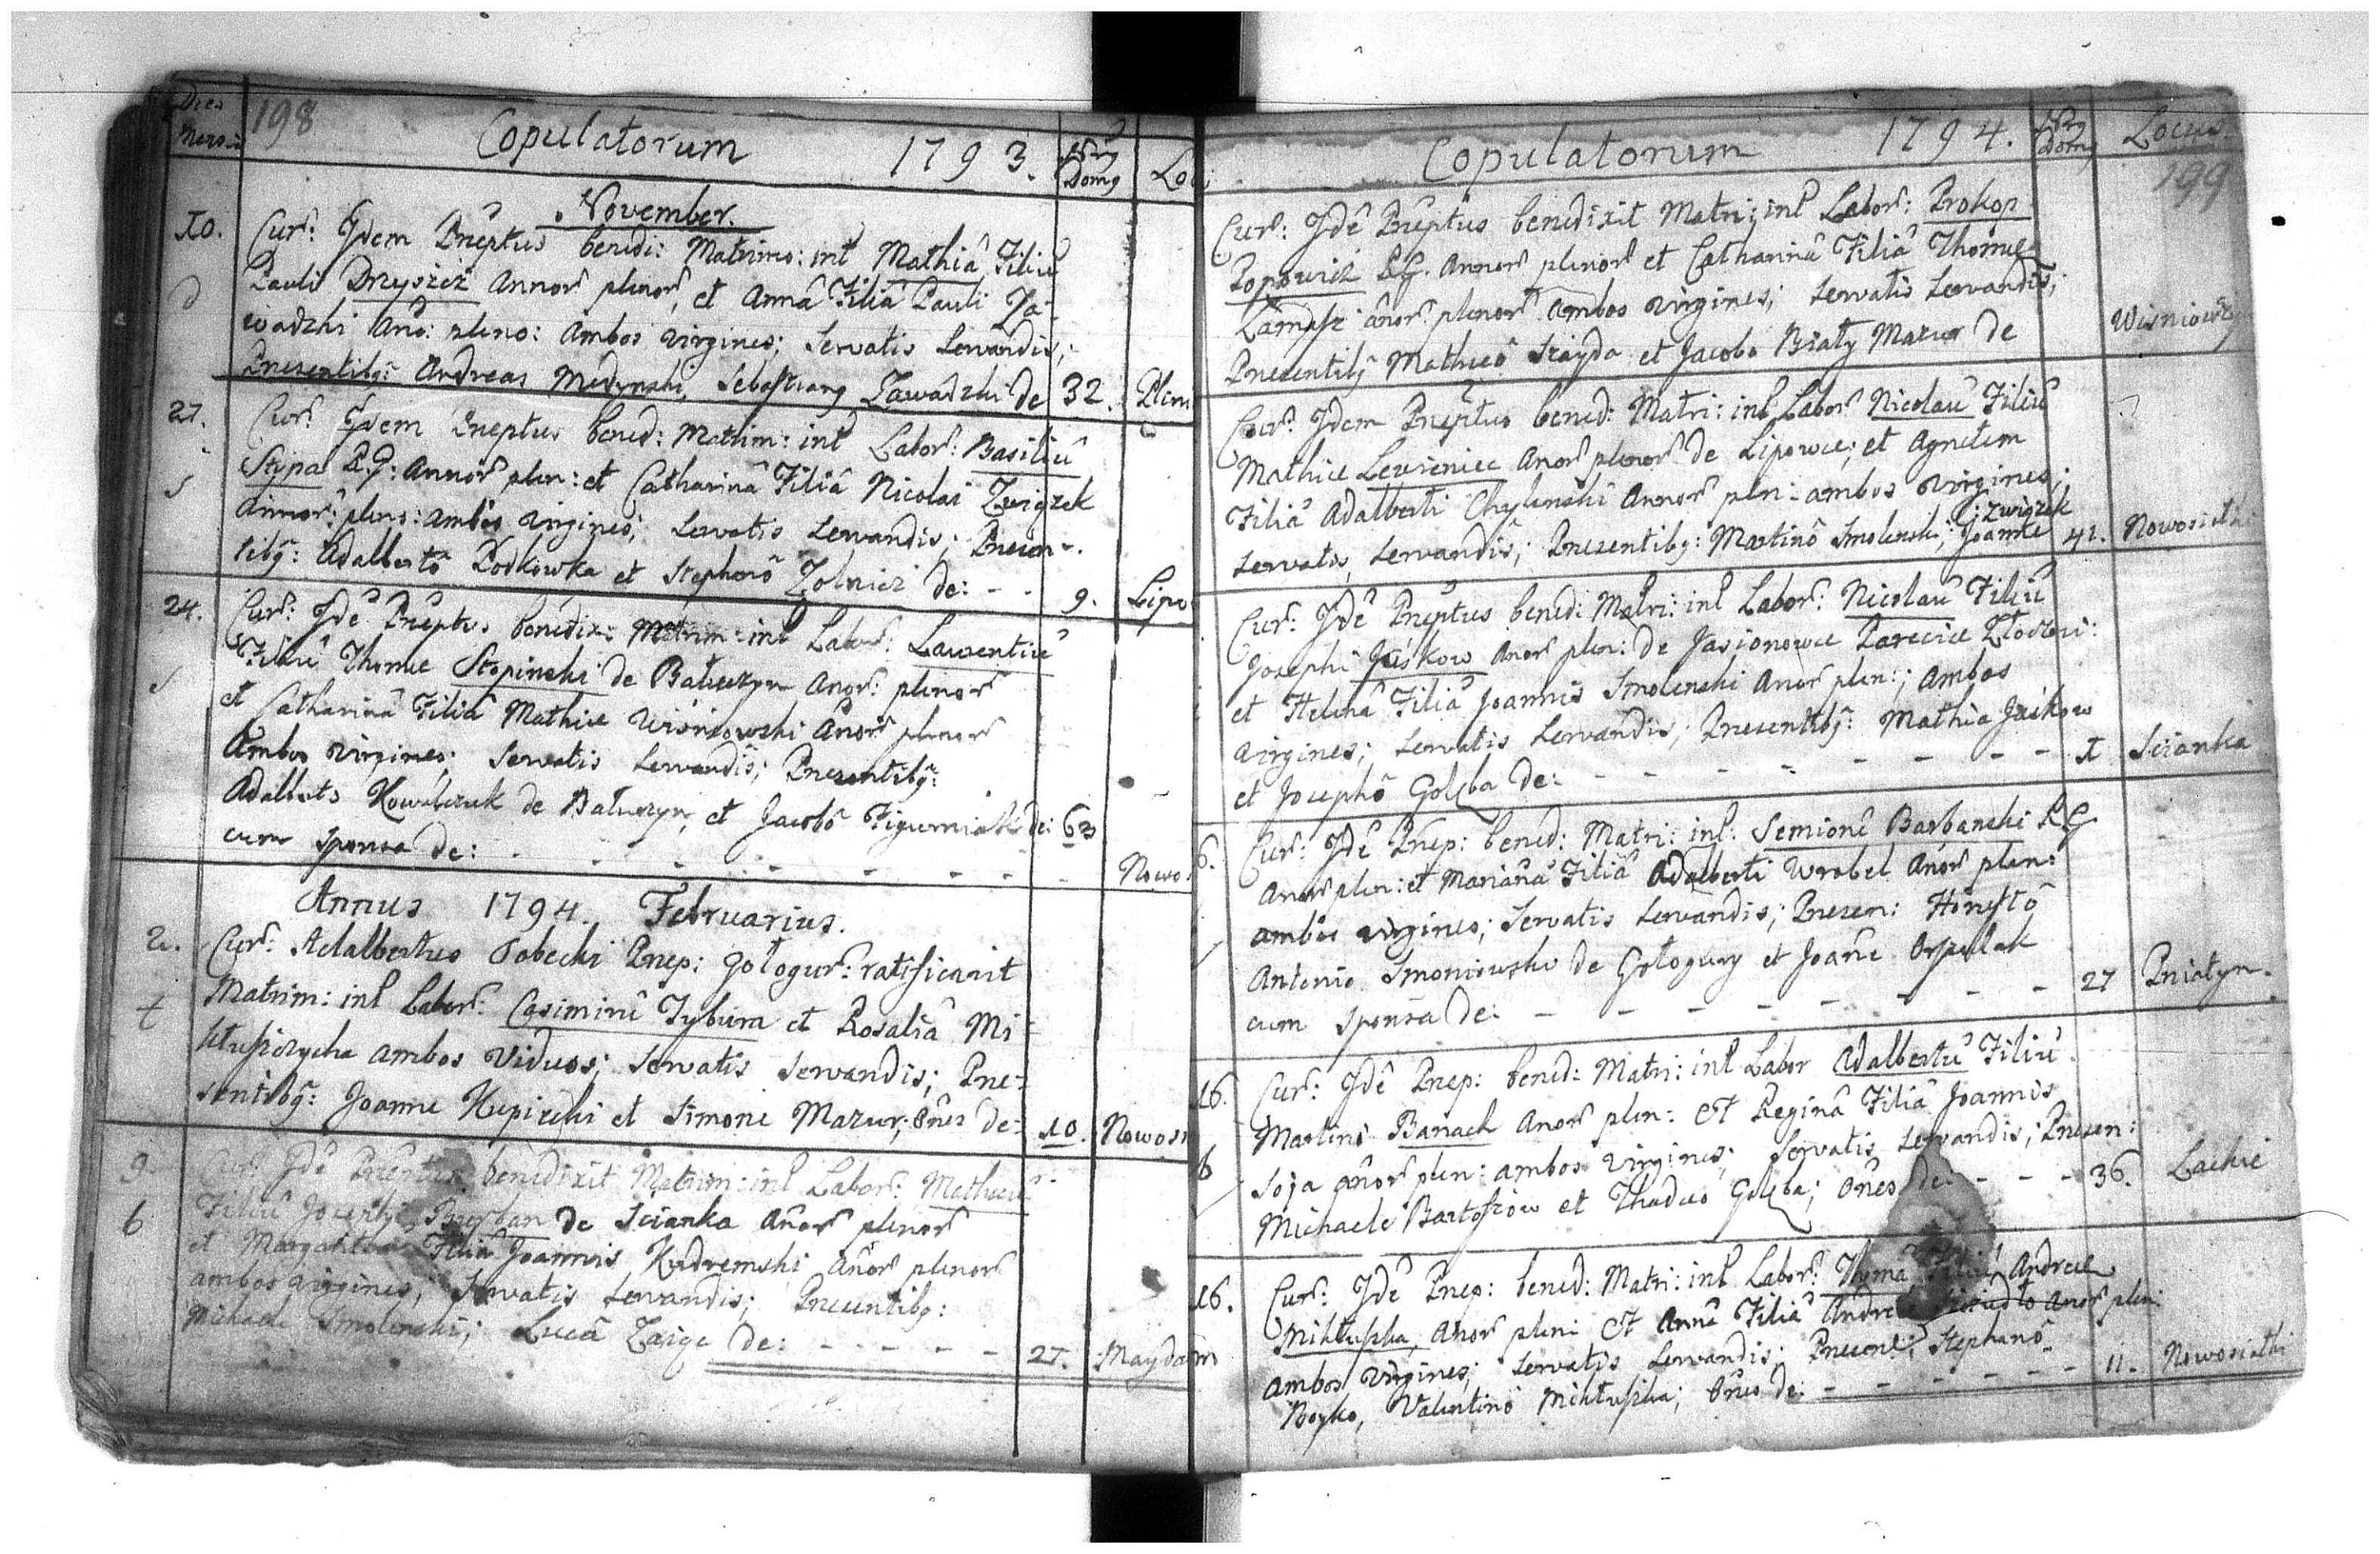 Dies
Mensis
198
Copulatorum 1793.
Nrus
Domg
Loci
November.
10. Curs: Idem Pnëptus benedi: Matrimo: int Mathiâ Filiû
Pauli Dryszcz Annors plenors, et Annâ Filiâ Pauli Za-
wadzki Ano: pleno: Ambos virgines; Servatis Servandis;
Presentibg: Andreas Medynski, Sebastiang Zawadzki de 32. Pleni
21. Curs: Idem Pneptus bened: Matrim: int Labors: Basiliû
Stypa R.G: Annors plen: et Catharinâ Filiâ Nicolai Związek
Annors: pleno: Ambos virgines; Servatis Servandis; Presen-
tibg: Adalbertô Podkowka et Stephanô Zolnicz de: - - 9. Lipo
24. Curs: Idê Pnëptus benedix: Matrim: int Labors: Laurentiû
Filiû Thomæ Stopinski de Batuczyn Anors: plenors
et Catharinâ Filiâ Mathiæ Wiśniowski Anors plenors
Ambos virgines; Servatis Servandis; Presentibg:
Adalberto Kowalczuk de Batuczyn, et Jacobô Figurniak de: 63
cum sponsa de: - - - - - - - - Nowos
Annus 1794. Februarius.
2. Curs: Adalbertus Sobecki Pnep: Gołogurs: ratificavit
Matrim: int Labors: Casimirû Tybura et Rosaliâ Mi-
ktuszczycha ambos Viduos; Servatis Servandis; Pre-
sentibg: Joanne Kupicki et Simone Mazur; ones de: 10. Nowosi
9 Curs: Idê Pnëptus benedixit Matrim: int Labors: Mathæû
6 Filiû Josephi de Scianka Anors plenors
et Margaretha Filiâ Joannis Kudremski Anors plenors
ambos virgines; Servatis Servandis; Presentibg:
Michaele Smolenski; Lucâ Zaigo de: - - - - - 21. Maydan
Copulatorum 1794.
Nrus
Domg
Locus.
199
Curs: Idê Pnëptus benedixit Matri: int Labors: Prokop
Popowicz R.G. Annors plenors et Catharinâ Filiâ Thomæ
Łamasz anors plenors ambos virgines; Servatis Servandis;
Presentibg Mathæô Szayda et Jacobo Biały Mazur de Wisniowczyk
Curs: Idem Pnëptus bened: Matri: int Labors Nicolaû Filiû
Mathiæ Lewieniec Anors plenors de Lipowce; et Agnetem
Filiâ Adalberti Chylinski Annors plen: ambos virgines;
Związek
Servatis Servandis; Presentibg: Martinô Smolenski; Joanne 41. Nowosiołki
Curs: Idê Pnëptus bened: Matri: int Labors: Nicolaû Filiû
Josephi Jaśkow Anors plen: de Jasionowce Parecice Złoczovi:
et Helenâ Filiâ Joannis Smolenski Anors plen:; Ambos
virgines; Servatis Servandis; Presentibg: Mathiâ Jaśkow
et Josephô Gołęba de: - - - - - - - 1 Scianka
6. Curs: Idê Pnep: bened: Matri: int: Semionê Barbanski R.G.
Anors plen: et Mariânâ Filiâ Adalberti Wrobel Anors plen:
ambos virgines; Servatis Servandis; Presen: Honestô
Antonio Smoniowski de Gołogury et Joânê Orpulak
cum sponsa de: - - - - - - - - 27 Pniatyn.
16. Curs: Idê Pnep: bened: Matri: int Labor Adalbertû Filiû
Martini Banach Anors plen: et Reginâ Filiâ Joannis
Soja anors plen: ambos virgines; Servatis Servandis; Presen:
Michaele Bartoszow et Thadæo Gołęba; ônes de: - - - 36. Lackie
16. Curs: Idê Pnep: bened: Matri: int Labors: Thoma Andreæ
Miktuszka, Anors plen: et Annâ Filiâ Andreæ anors plen:
Ambos virgines; Servatis Servandis; Presen: Stephanô
Boyko, Valentinô Miktuszka; ônes de: - - - - - - 11. Nowosiołki